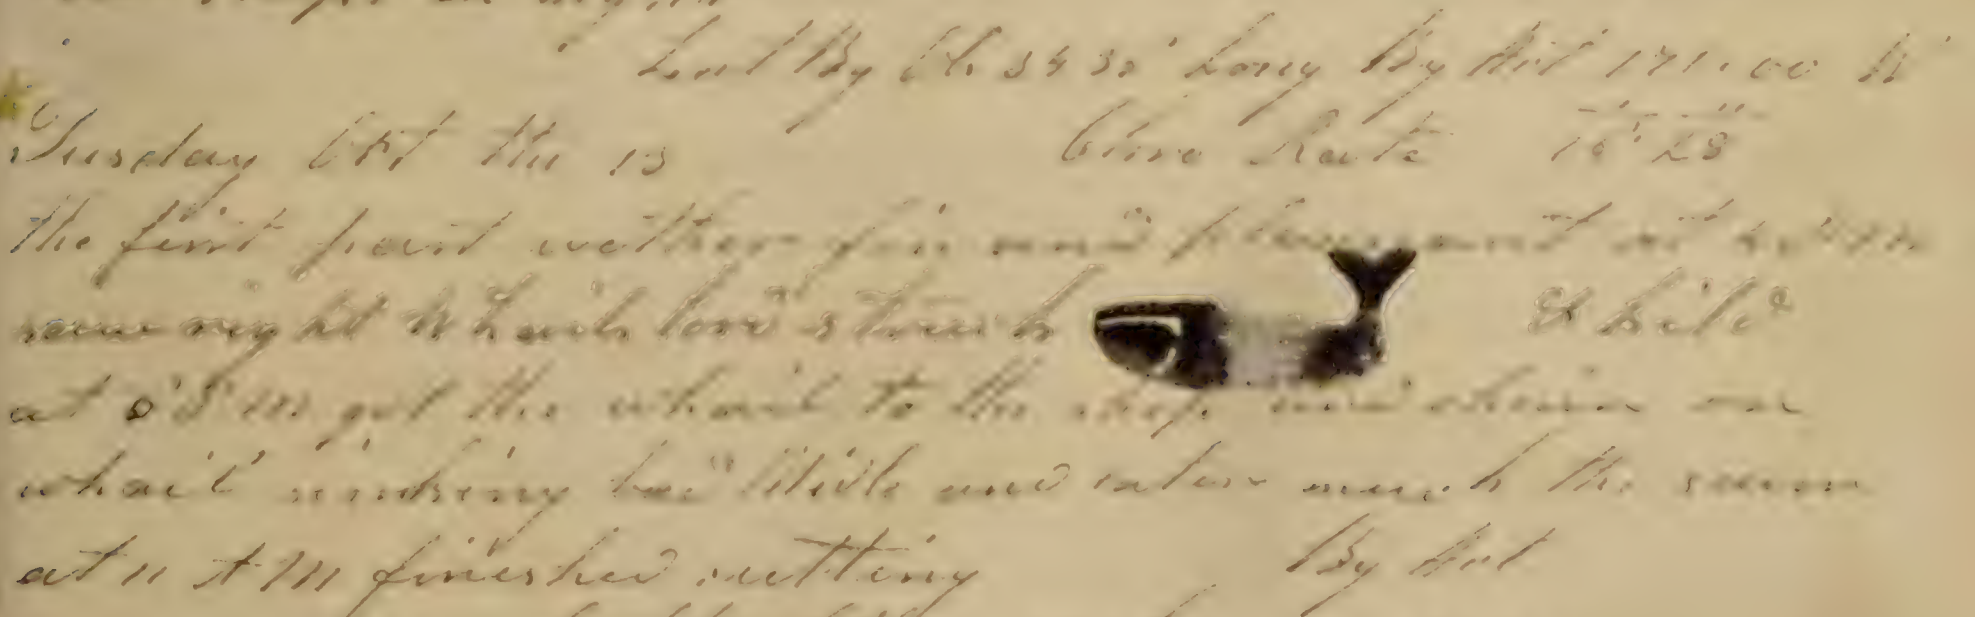 Lat By Ob 34 30' Long By Aut 171.00 W
Tusday Oct the 13 Chro Rate
the first part wether fin and plesent at
saw right Whails lord struck & kild
at 5 P M got the whail to the ship and chain on
whail sinking bad Midle and later much the same
at 11 A M finished cutting By Aut